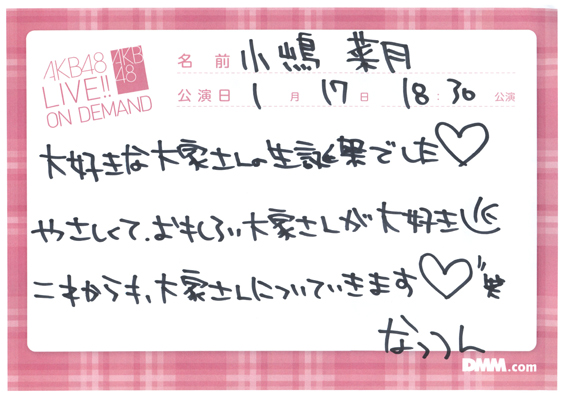 AKB48
LIVE!!
ON DEMAND
AKB
48
名前 小嶋 菜月
公演日 1月17日 18:30 公演
大好きな大家さんの生誕祭でした♡
やさしくて、おもしろい大家さんが大好き
これからも、大家さんについていきます♡笑
なっつん
DMM.com